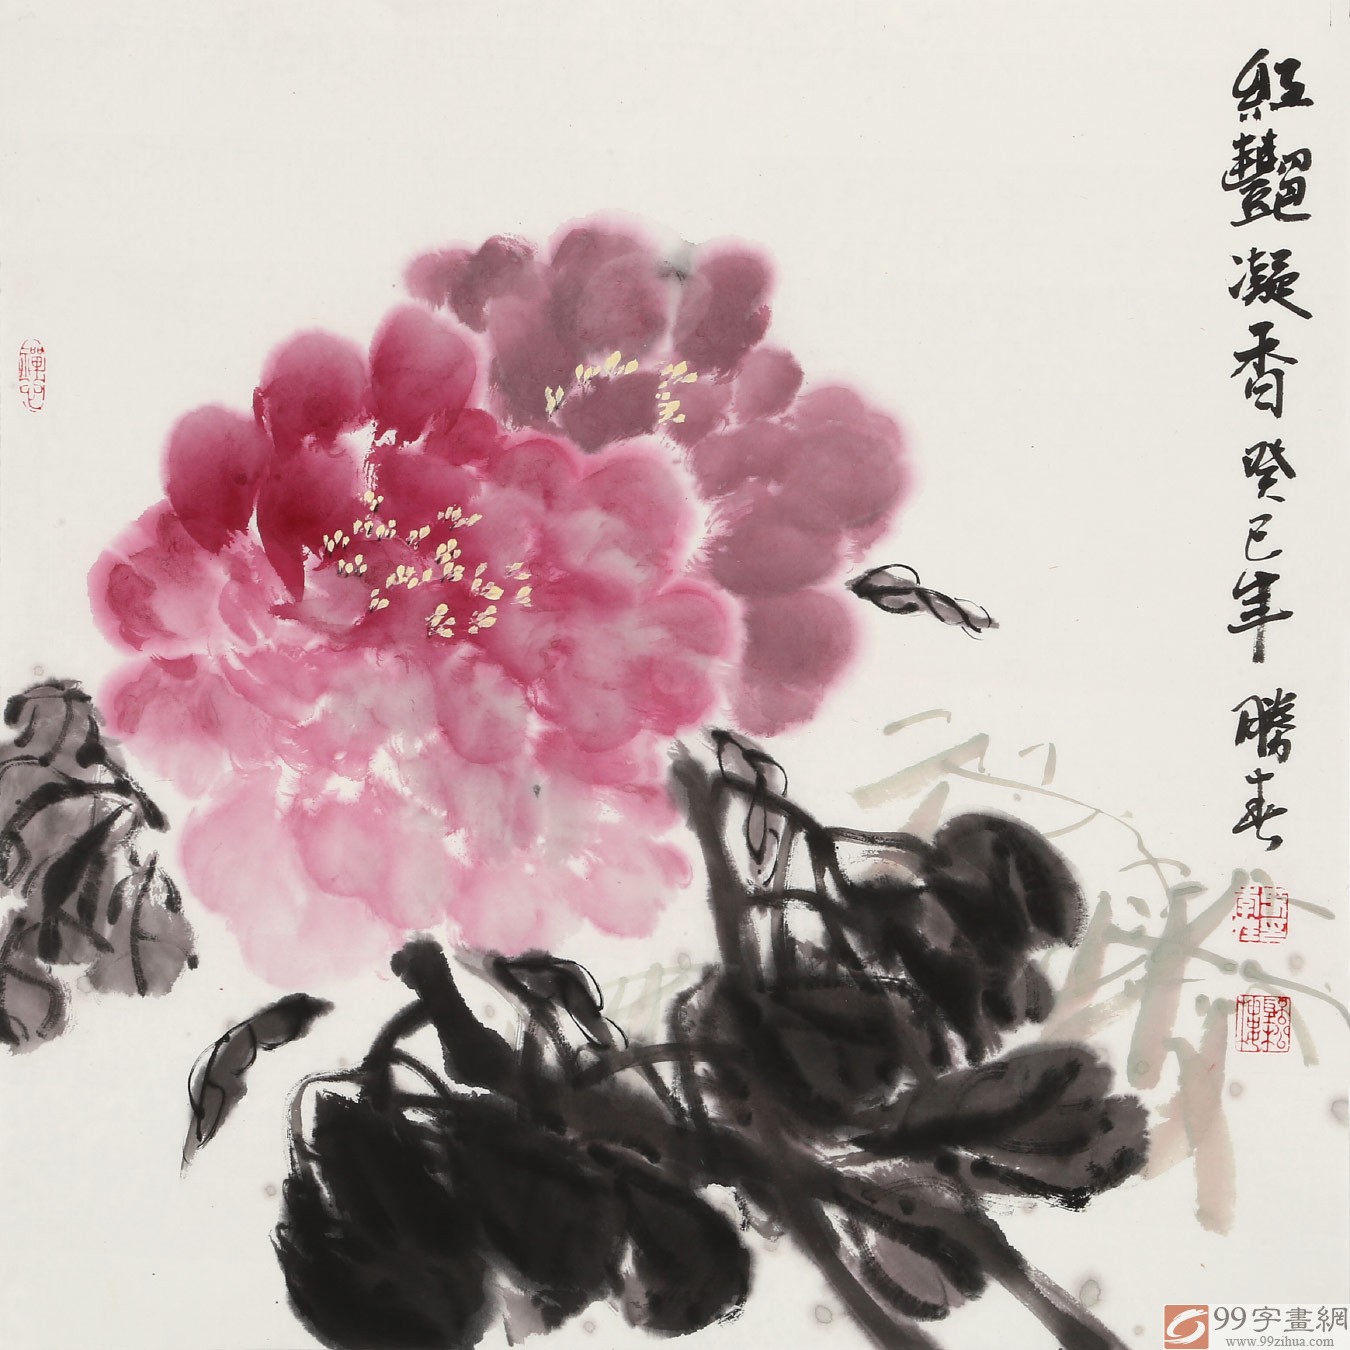 紅豔凝香 癸巳年 勝春
禪心
99字畫網
www.99zihua.com